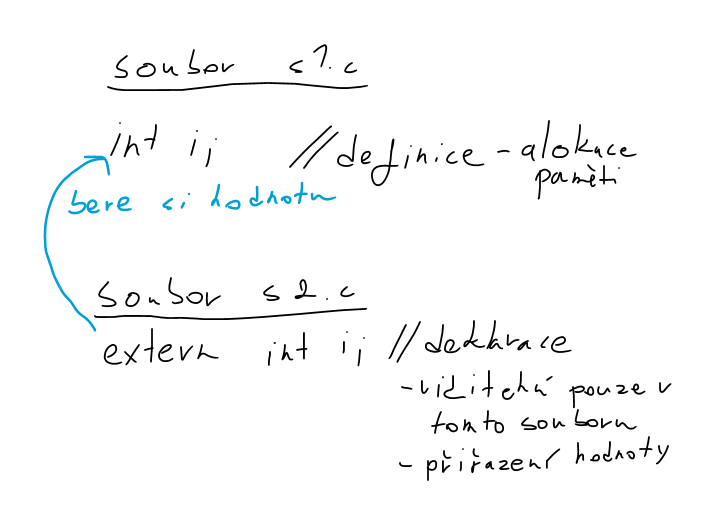 soubor s1.c
int i; // definice - alokace
paměti
bere si hodnotu
soubor s2.c
extern int i; // deklarace
- viditelná pouze v
tomto souboru
- přiřazení hodnoty